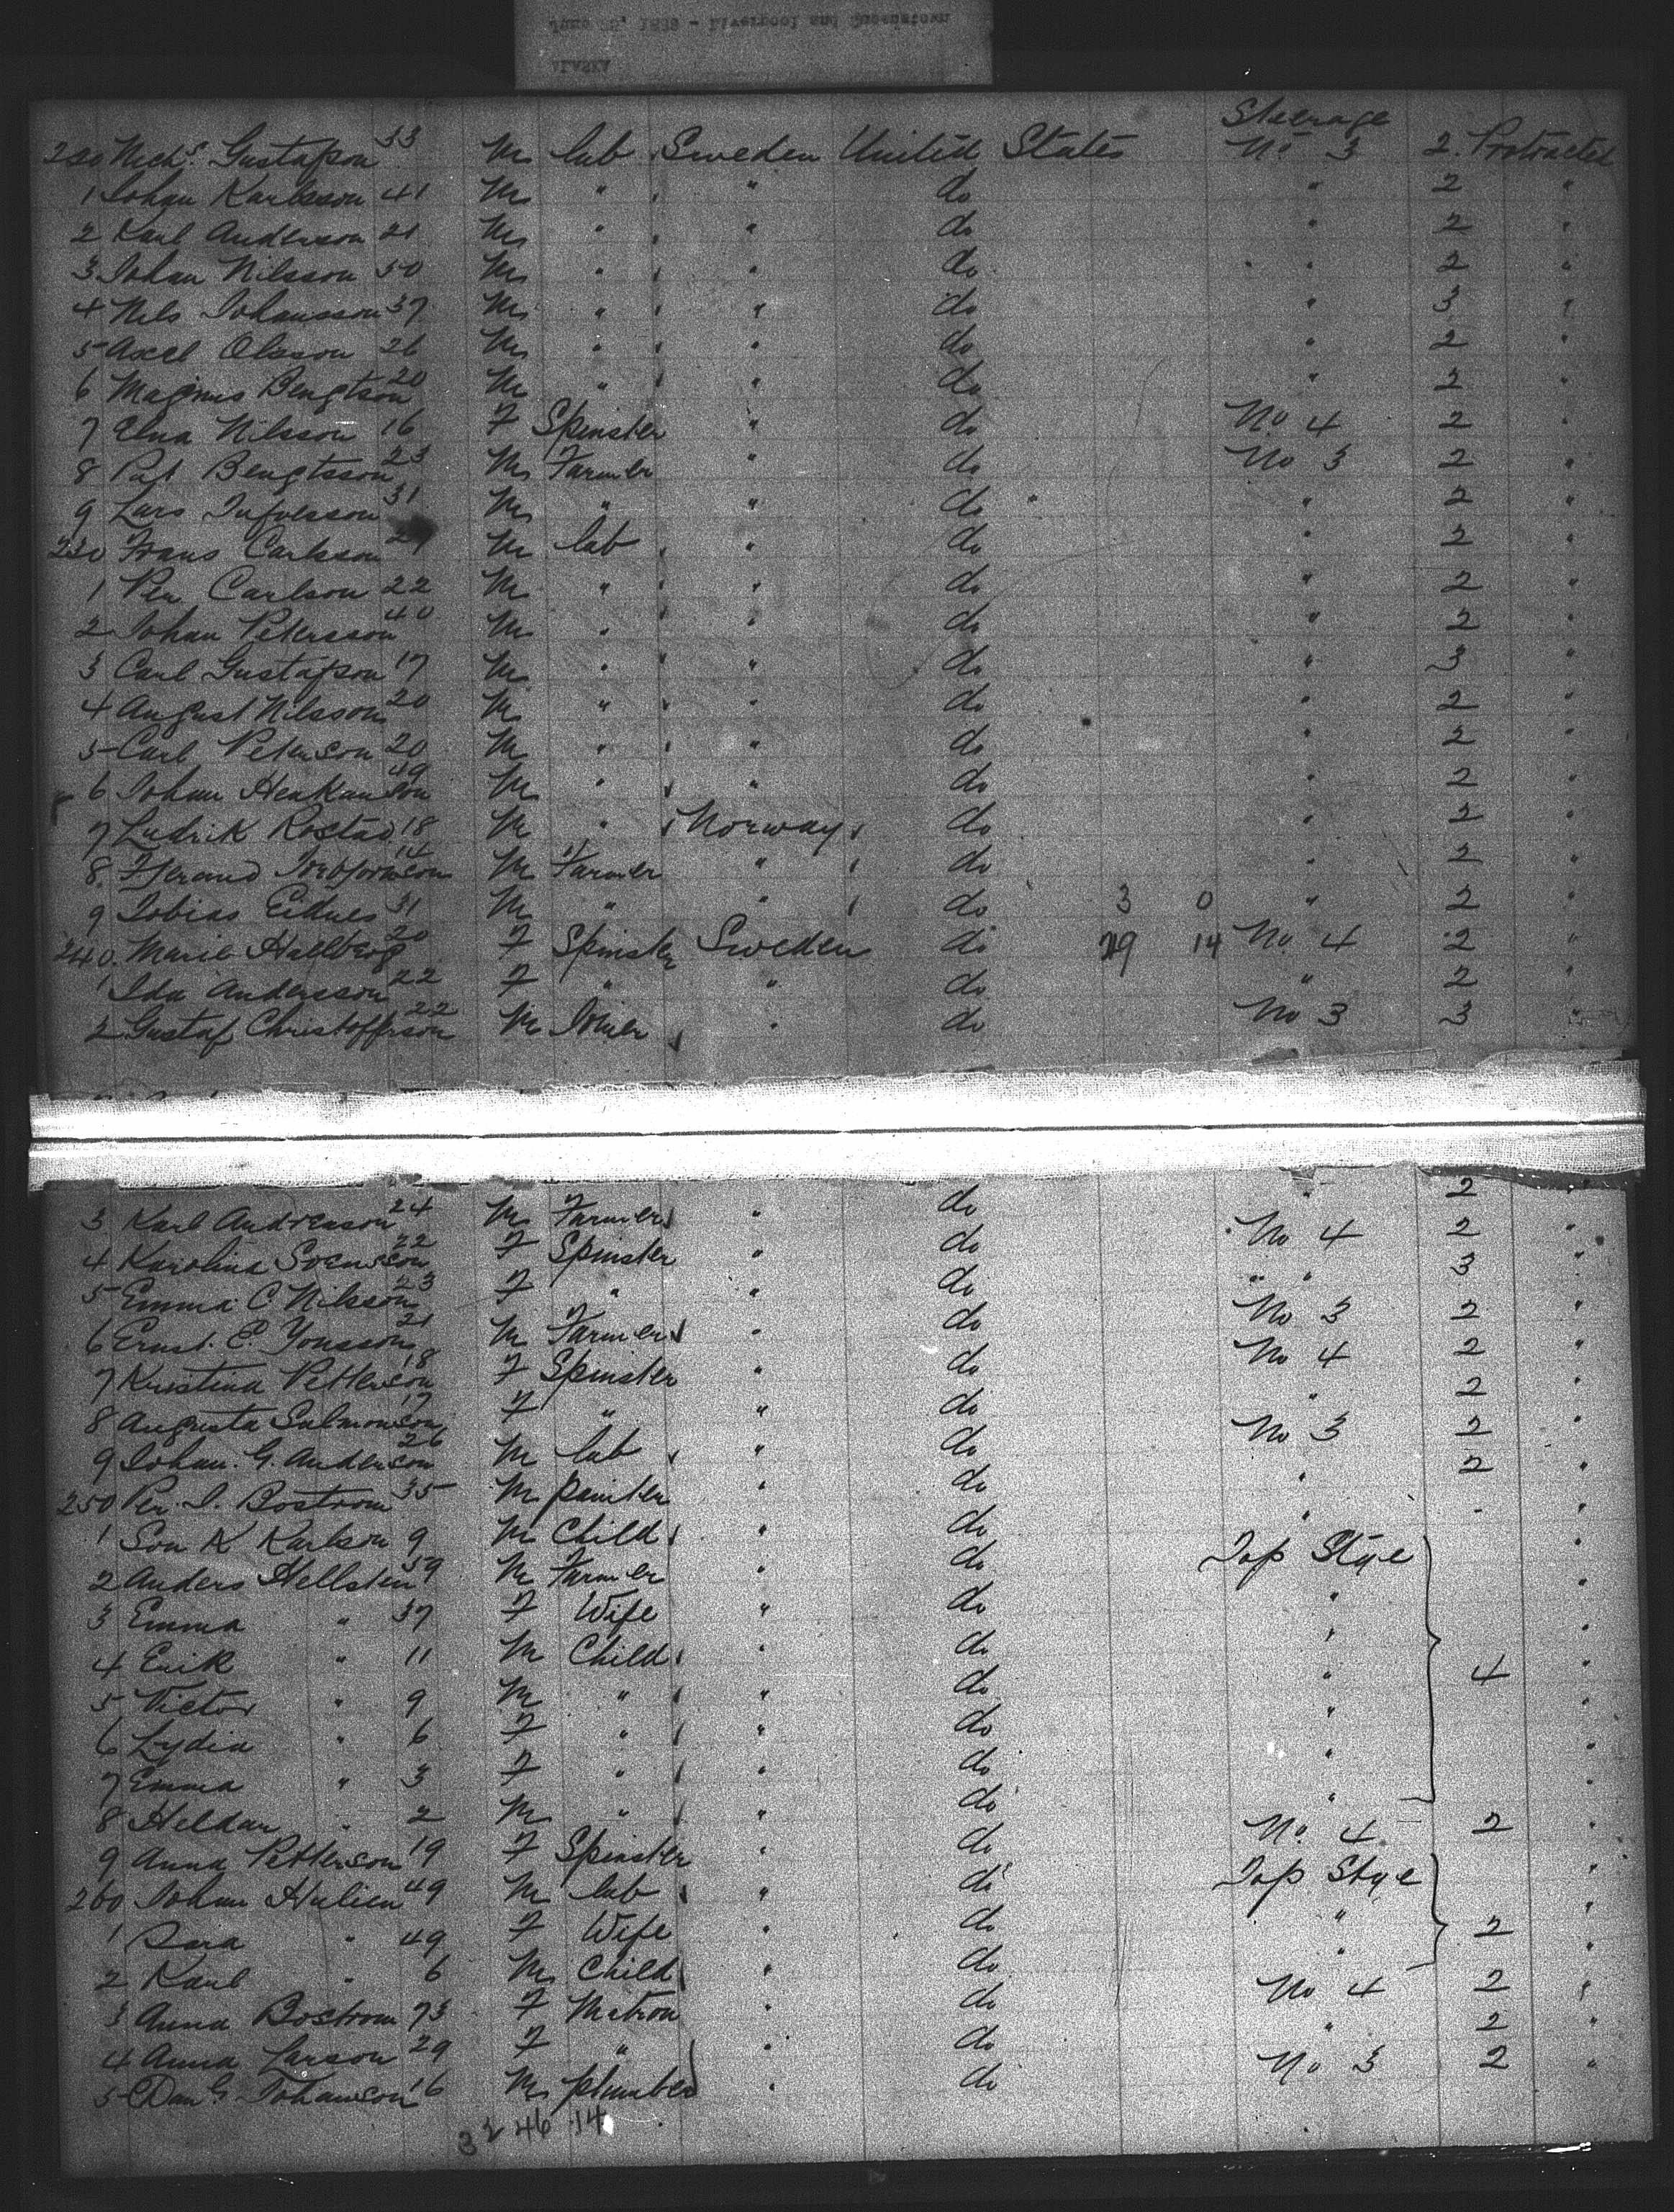 ALASKA
June 25, 1888 - Liverpool and Queenstown
Steerage
220 Nichs Gustafson 33 M lab Sweden United States No 3 2 Protracted
1 Johan Karlsson 41 M " " do " 2 "
2 Karl Anderson 21 M " " do " 2 "
3 Johan Nilsson 50 M " " do " 2 "
4 Nils Johansson 37 M " " do " 3 "
5 Axel Olsson 26 M " " do " 2 "
6 Magnus Bengtson 20 M " " do " 2 "
7 Elna Nilsson 16 F Spinster " do No 4 2 "
8 Pal Bengtsson 23 M Farmer " do No 3 2 "
9 Lars 31 M " " do " 2 "
230 Frans Carlsson M lab " do " 2 "
1 Per Carlson 22 M " " do " 2 "
2 Johan Petersson 40 M " " do " 2 "
3 Carl Gustafson 17 M " " do " 3 "
4 August Nilsson 20 M " " do " 2 "
5 Carl Peterson 20 M " " do " 2 "
6 Johan Heakanson 49 M " " do " 2 "
7 Ludrik Rostad 18 M " Norway do " 2 "
8 14 M Farmer " do " 2 "
9 Tobias Eidnes 31 M " " do 3 0 " 2 "
240 Marie Hallberg 20 F Spinster Sweden do 29 14 No 4 2 "
1 Ida Andersson 22 F " " do " 2 "
2 Gustaf Christofferson 22 M Joiner " do No 3 3 "
3 Karl Andreason 24 M Farmer " do " 2 "
4 Karolina Svensson 22 F Spinster " do No 4 2 "
5 Emma C Nilsson 23 F " " do " " 3 "
6 Ernst E. Yonsson 21 M Farmer " do No 3 2 "
7 Kristina Petterson 18 F Spinster " do No 4 2 "
8 Augusta Salmonson 17 F " " do " 2 "
9 Johan. G. Anderson 26 M lab " do No 3 2 "
250 Per. J. Bostrom 35 M painter " do " 2 "
1 Son K Karlson 9 M Child " do " - "
2 Anders Hellsten 39 M Farmer " do Top Stge "
3 Emma " 37 F Wife " do " "
4 Erik " 11 M Child " do " "
5 Victor " 9 M " " do " 4 "
6 Lydia " 6 F " " do " "
7 Emma " 3 F " " do " "
8 Heldan " 2 M " " do " "
9 Anna Petterson 19 F Spinster " do No 4 2 "
260 Johan Hulien 49 M lab " do Top Stge "
1 Sara " 49 F Wife " do " 2 "
2 Karl " 6 M Child " do " "
3 Anna Bostrom 73 F Matron " do No 4 2 "
4 Anna Larson 29 F " " do " 2 "
5 Dan G. Johanson 16 M plumber " do No 3 2 "
32 46 14